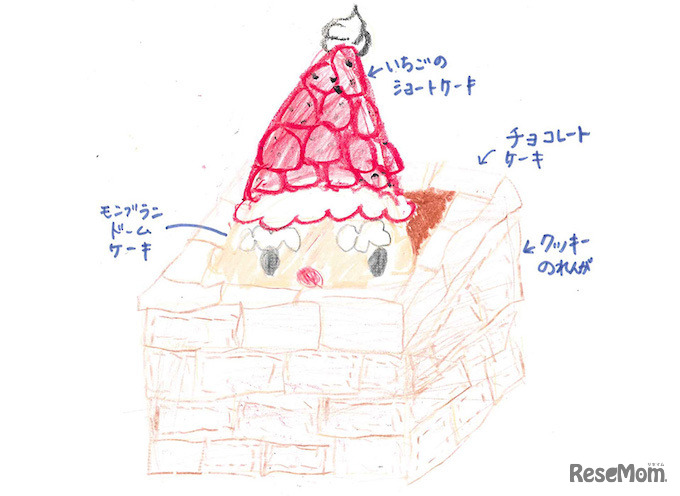 いちごの
ショートケーキ
チョコレート
ケーキ
モンブラン
ドーム
ケーキ
クッキー
のれんが
リセマム
ReseMom.